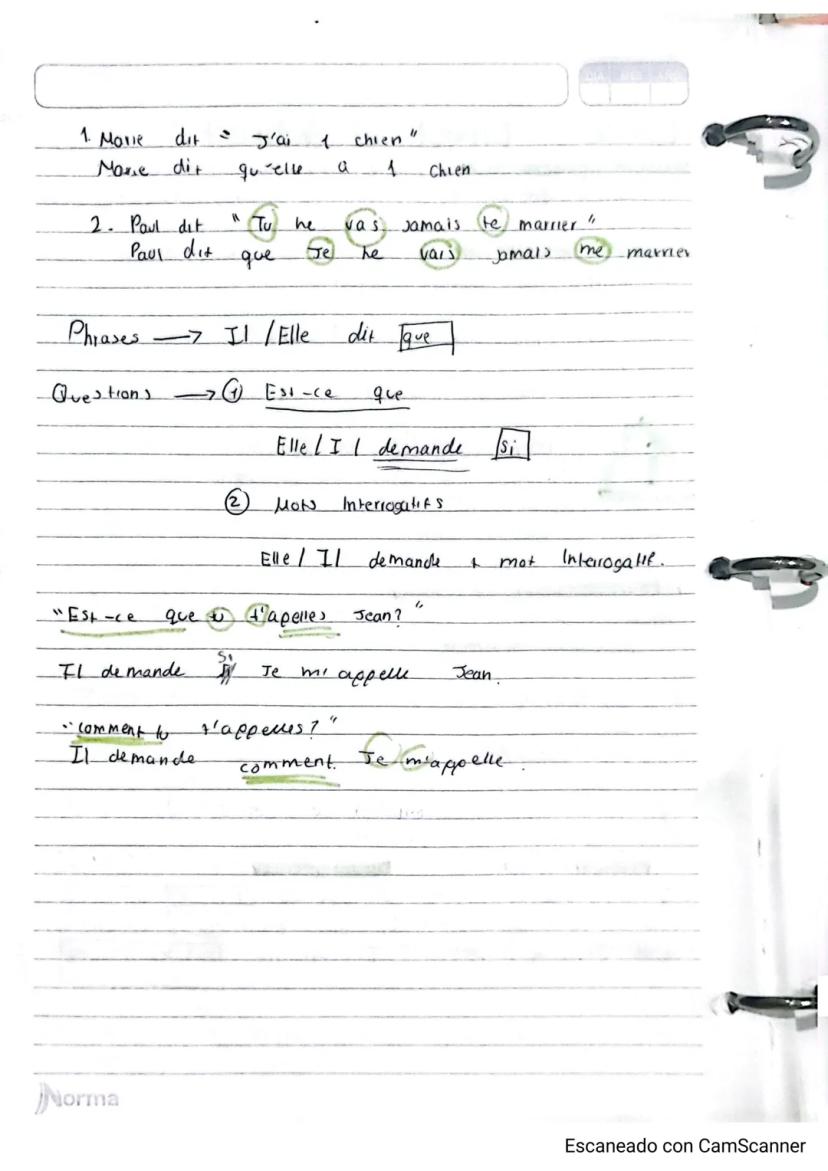 DIA MES AÑO
1. Marie dit = "J'ai 1 chien"
Marie dit qu'elle a 1 chien
2. Paul dit "Tu ne vas jamais te marrier"
Paul dit que Je ne vais jamais me marrier
Phrases → Il /Elle dit que
Questions → ① Est-ce que
Elle / Il demande si
② Mots Interrogatifs
Elle / Il demande + mot Interrogatif.
"Est-ce que tu t'apelles Jean?"
Il demande si Je m'appelle Jean.
"comment tu t'appelles?"
Il demande comment Je m'appelle.
Norma
Escaneado con CamScanner